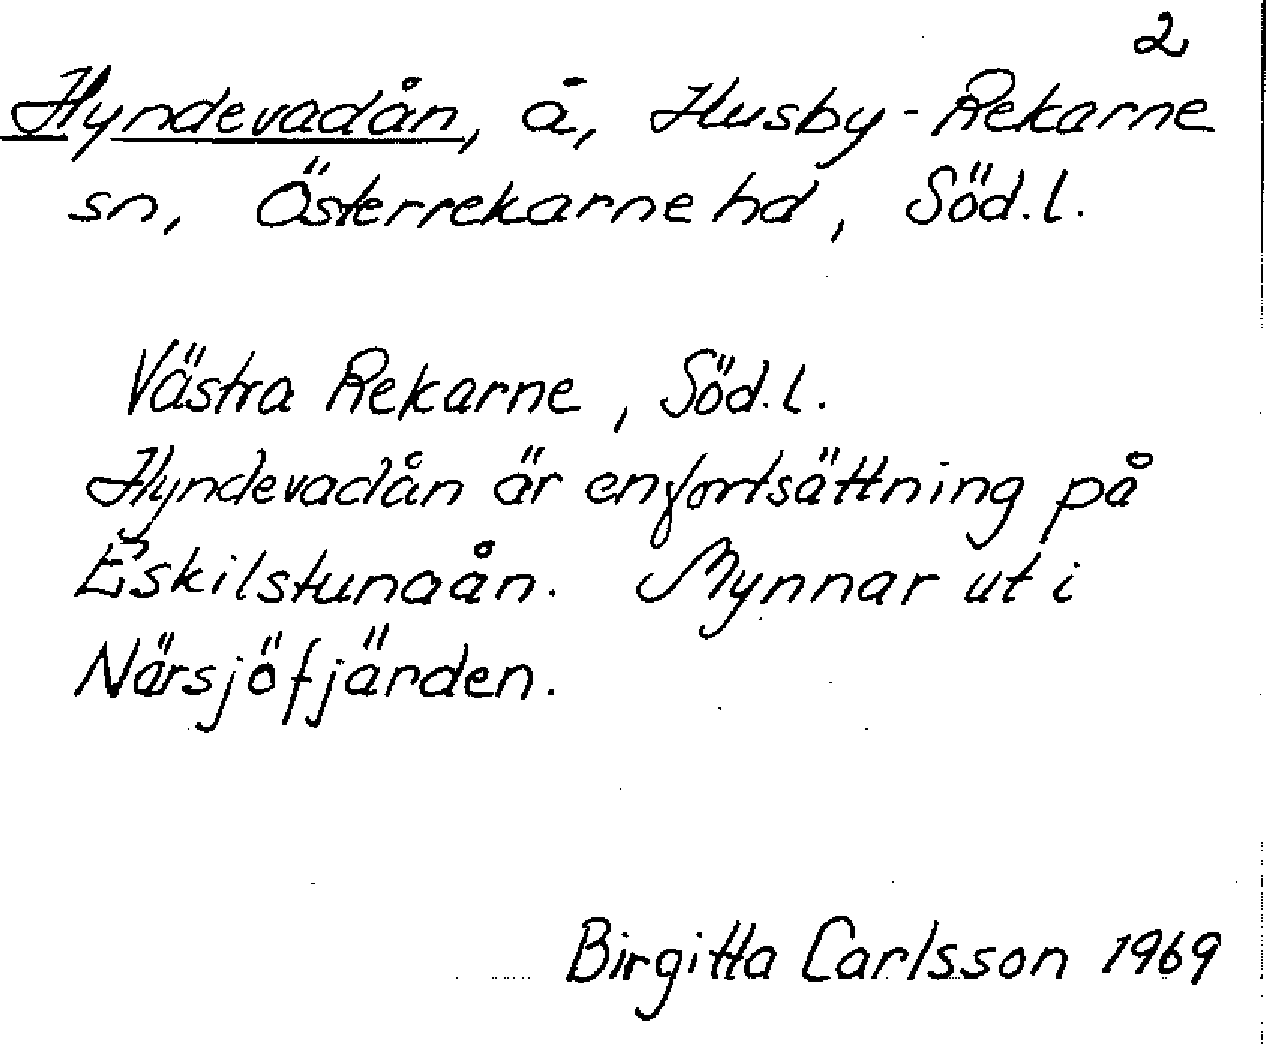 2
Hyndevadån, å, Husby-Rekarne
sn, Österrekarne hd, Söd.l.
Västra Rekarne, Söd.l.
Hyndevadån är en fortsättning på
Eskilstunaån. Mynnar ut i
Närsjöfjärden.
Birgitta Carlsson 1969